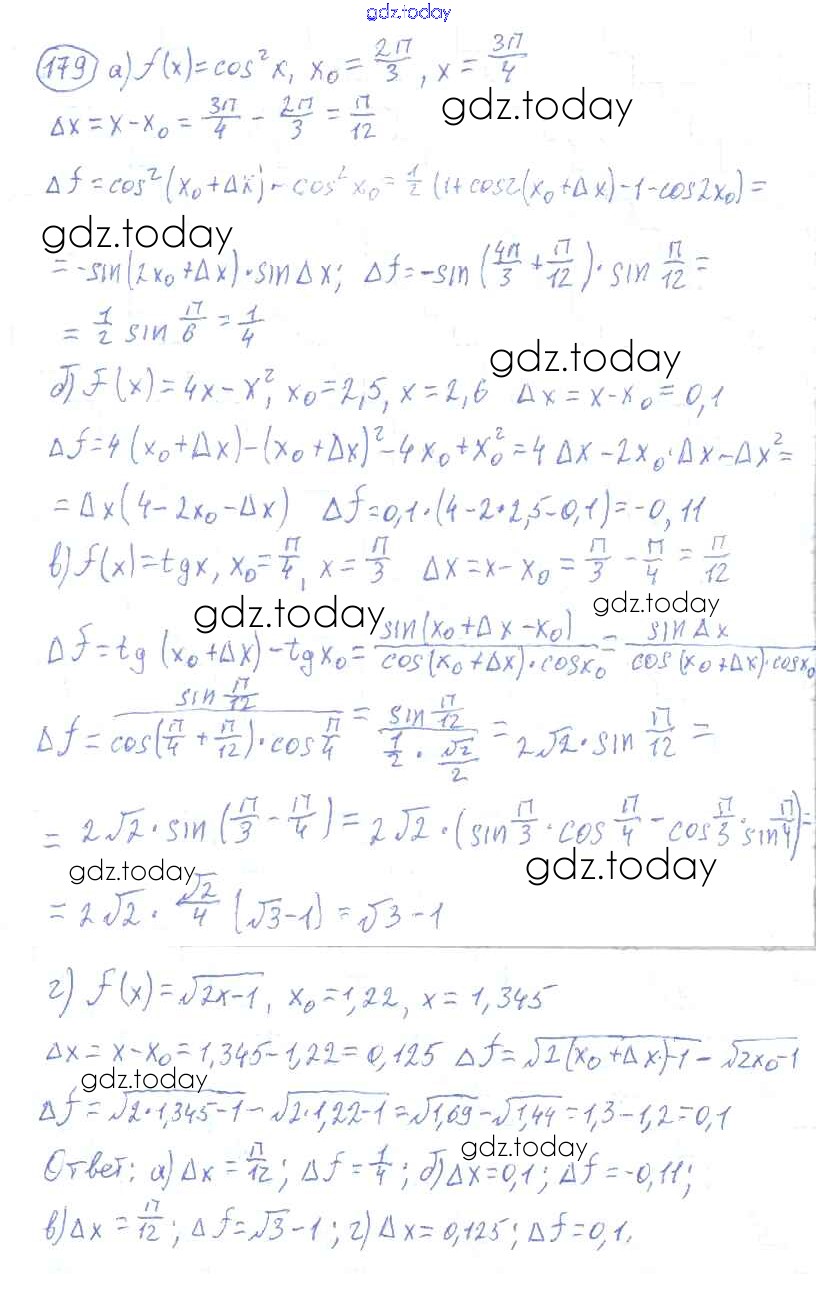 gdz.today
179) а) f(x)=cos²x, x₀=2π/3, x=3π/4
gdz.today
Δx=x-x₀=3π/4-2π/3=π/12
Δf=cos²(x₀+Δx)-cos²x₀=1/2(1+cos2(x₀+Δx)-1-cos2x₀)=
gdz.today
=-sin(2x₀+Δx)·sinΔx; Δf=-sin(4π/3+π/12)·sin π/12=
=1/2 sin π/6=1/4
gdz.today
б) f(x)=4x-x², x₀=2,5, x=2,6 Δx=x-x₀=0,1
Δf=4(x₀+Δx)-(x₀+Δx)²-4x₀+x₀²=4Δx-2x₀·Δx-Δx²=
=Δx(4-2x₀-Δx) Δf=0,1·(4-2·2,5-0,1)=-0,11
в) f(x)=tgx, x₀=π/4, x=π/3 Δx=x-x₀=π/3-π/4=π/12
gdz.today gdz.today
Δf=tg(x₀+Δx)-tgx₀=sin(x₀+Δx-x₀)/cos(x₀+Δx)·cosx₀=sinΔx/cos(x₀+Δx)·cosx₀
Δf=sin π/12/cos(π/4+π/12)·cos π/4=sin π/12/1/2·√2/2=2√2·sin π/12=
=2√2·sin(π/3-π/4)=2√2·(sin π/3·cos π/4-cos π/3·sin π/4)=
gdz.today gdz.today
=2√2·√2/4(√3-1)=√3-1
г) f(x)=√2x-1, x₀=1,22, x=1,345
Δx=x-x₀=1,345-1,22=0,125 Δf=√2(x₀+Δx)-1-√2x₀-1
gdz.today
Δf=√2·1,345-1-√2·1,22-1=√1,69-√1,44=1,3-1,2=0,1
gdz.today
Ответ: а) Δx=π/12; Δf=1/4; б) Δx=0,1; Δf=-0,11;
в) Δx=π/12; Δf=√3-1; г) Δx=0,125; Δf=0,1.